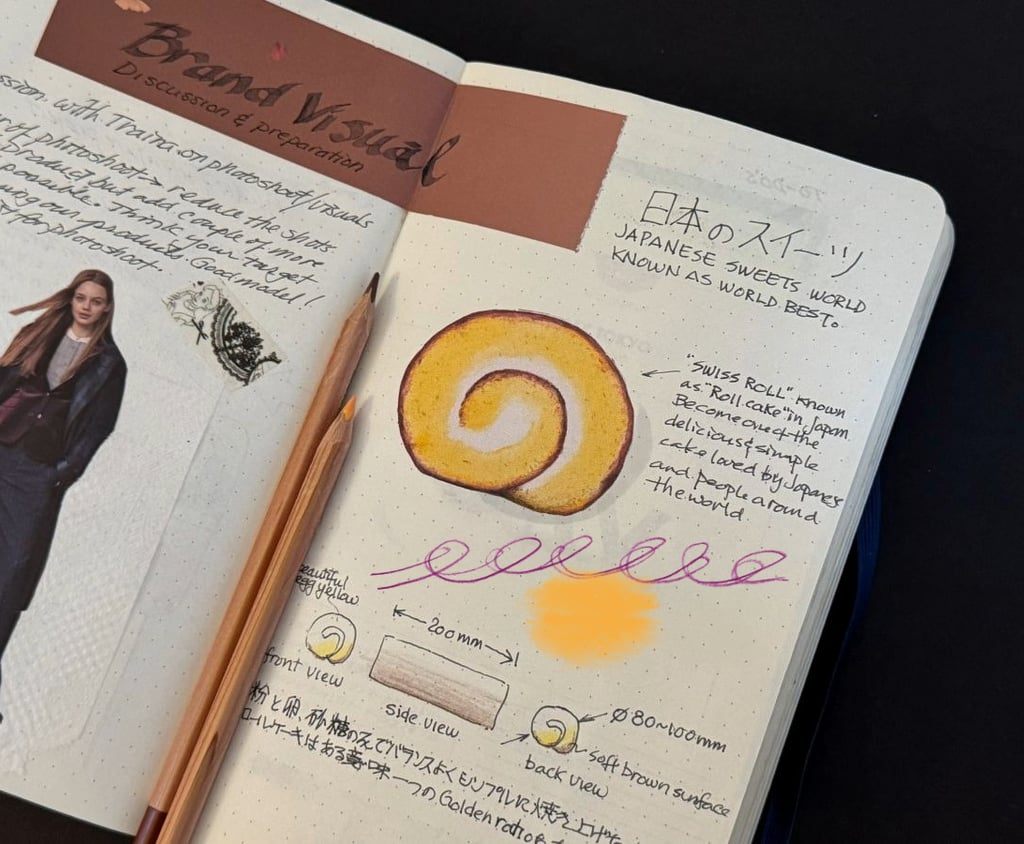 Brand Visual
Discussion & preparation
with Traina on photoshoot/visuals
of photoshoot → reduce the shots
Product but add couple of more
possible. Think your target
our products. Good model!
for photoshoot.
TO-DOS
日本のスイーツ
JAPANESE SWEETS WORLD
KNOWN AS WORLD BEST。
"SWISS ROLL" known
as "Roll cake" in Japan.
Become one of the
delicious & simple
cake loved by Japanese
and people around
the world
beautiful
egg yellow
front view
200mm
side view
Ø80~100mm
soft brown surface
back view
粉と卵、砂糖のみでバランスよくシンプルに焼き上げた
ロールケーキはある意味一つのGolden ratio